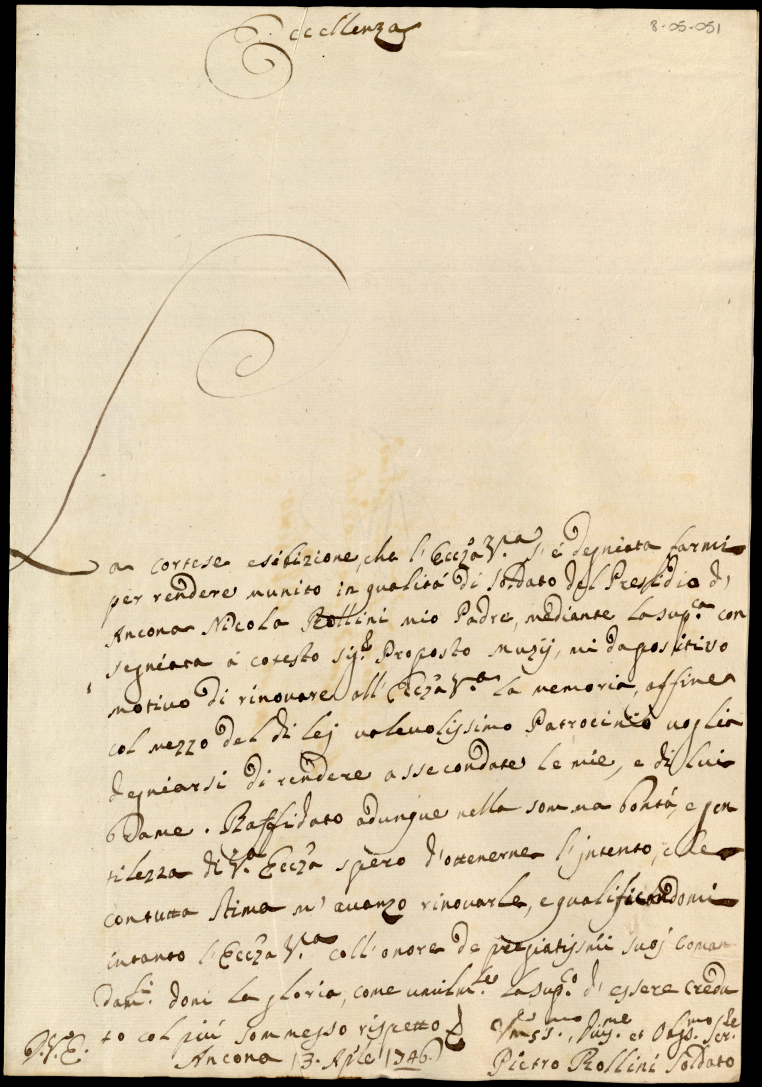 8-05-051
Eccellenza
La cortese esibizione, che l'Ecc.za V.ra s'è degniata farmi
per rendere munito in qualitá di Soldato del Presidio d'
Ancona Nicola Rollini mio Padre, mediante la sup.ca con
segniata á cotesto Sig.re Proposto Muzij, mi da positivo
motivo di rinovare all'Ecc.za V.ra la memoria, affine
col mezzo del di Lej valevolissimo Patrocinio voglia
degniarsi di rendere assecondate le mie, e di lui
brame. Raffidato adunque nella somma bontá, e gen
tilezza di V.ra Ecc.za spero d'ottenerne l'jntento, che
con tutta stima m'avanzo rinovarle, e qualificandomi
intanto l'Ecc.za V.ra coll'onore de pregiatissmi suoj Coman
dam.ti doni la gloria, come umilm.te la sup.co d'essere Credu
to col piú sommesso rispetto
D.V.E.
Ancona 13. Ap'le 1746.
Um.mo Div.mo et Obg.mo Ser.re
Pietro Rollini Soldato